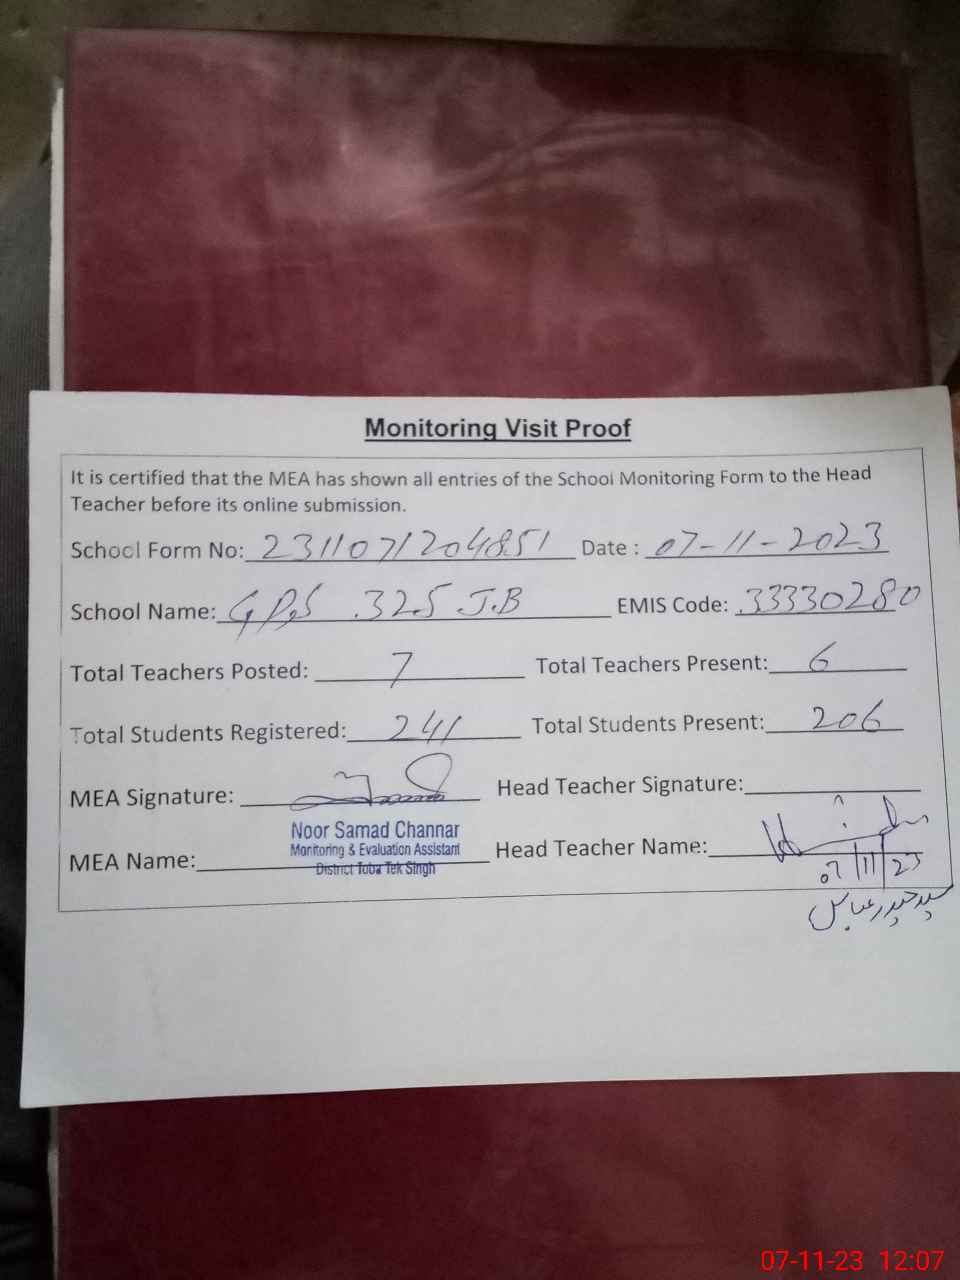 Monitoring Visit Proof
It is certified that the MEA has shown all entries of the School Monitoring Form to the Head
Teacher before its online submission.
School Form No: 2311071204851 Date : 07-11-2023
School Name: GPS 325 J.B EMIS Code: 33330280
Total Teachers Posted: 7 Total Teachers Present: 6
Total Students Registered: 241 Total Students Present: 206
MEA Signature: Head Teacher Signature:
Noor Samad Channar
Monitoring & Evaluation Assistant
District Toba Tek Singh
MEA Name: Head Teacher Name:
07/11/23
سید حیدر عباس
07-11-23 12:07